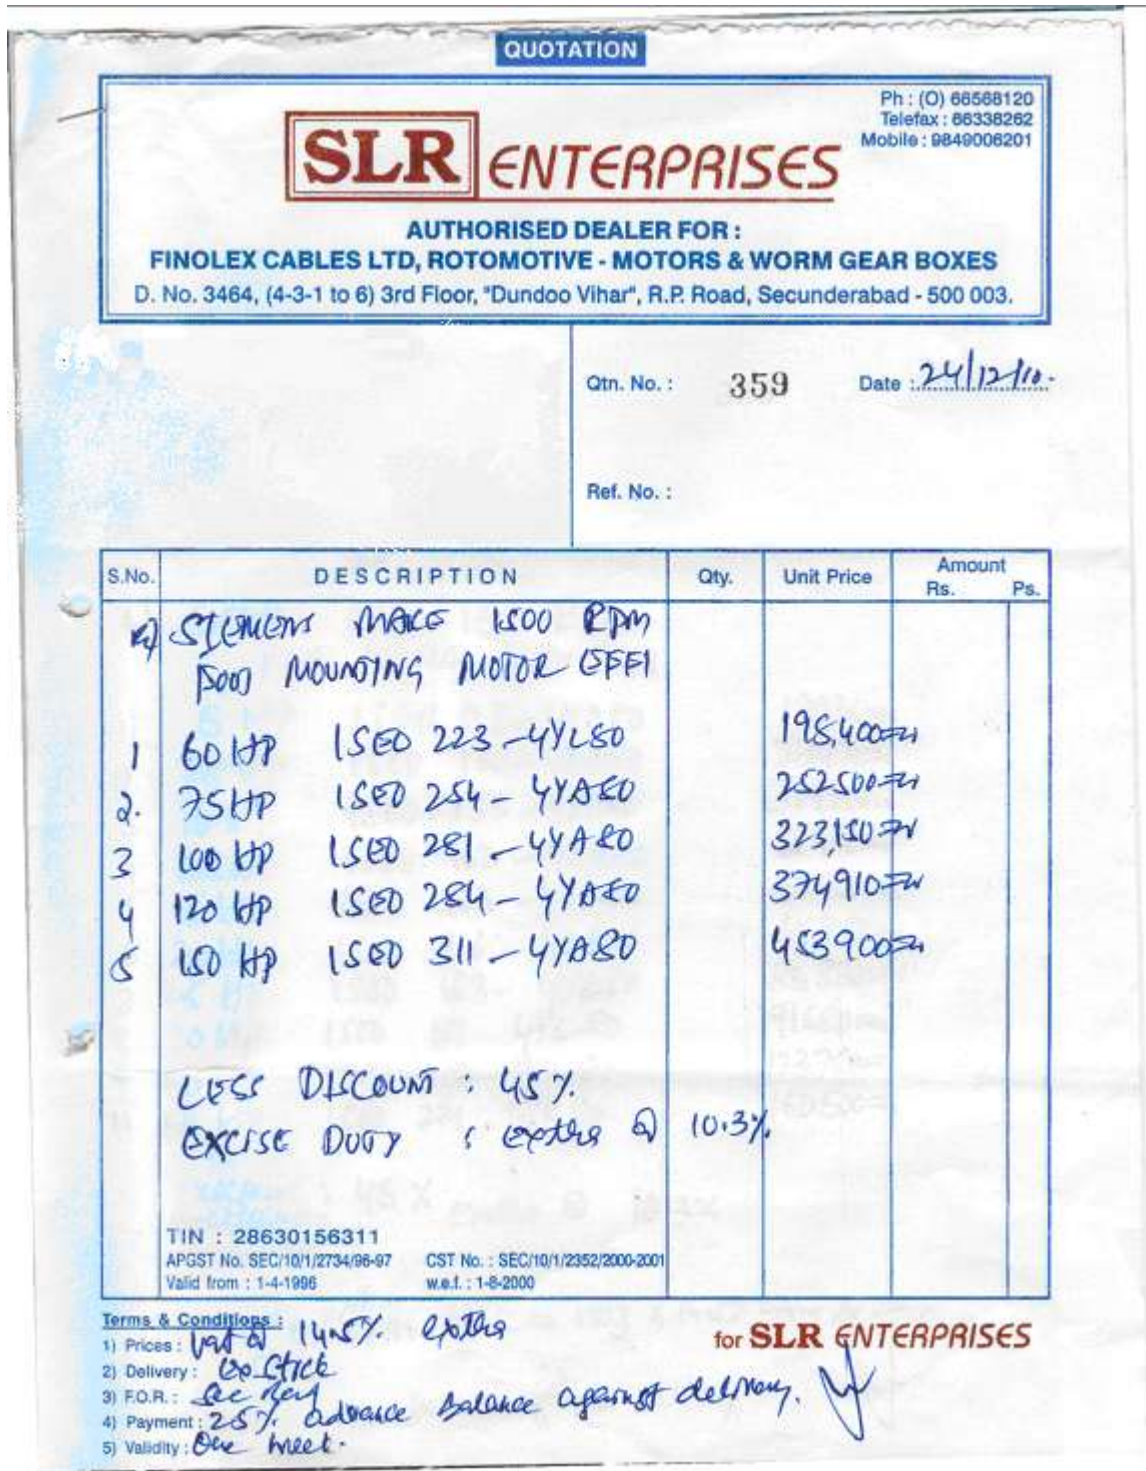 QUOTATION
Ph : (O) 66568120
Telefax : 66338262
Mobile : 9849006201
SLR ENTERPRISES
AUTHORISED DEALER FOR :
FINOLEX CABLES LTD, ROTOMOTIVE - MOTORS & WORM GEAR BOXES
D. No. 3464, (4-3-1 to 6) 3rd Floor, "Dundoo Vihar", R.P. Road, Secunderabad - 500 003.
Qtn. No. : 359 Date : 24/12/10.
Ref. No. :
S.No. DESCRIPTION Qty. Unit Price Amount
Rs. Ps.
SIEMENS MAKE 1500 RPM
FOOT MOUNTING MOTOR EFF1
1 60 HP 1SE0 223-4YL80 195,400=00
2. 75 HP 1SE0 254-4YA80 252500=00
3 100 HP 1SE0 281-4YA80 323,150=00
4 120 HP 1SE0 284-4YA80 374910=00
5 150 HP 1SE0 311-4YA80 453900=00
LESS DISCOUNT : 45%
EXCISE DUTY : extra @ 10.3%
TIN : 28630156311
APGST No. SEC/10/1/2734/96-97 CST No. : SEC/10/1/2352/2000-2001
Valid from : 1-4-1996 w.e.f. : 1-8-2000
Terms & Conditions :
1) Prices : Vat @ 14.5% extra
for SLR ENTERPRISES
2) Delivery : Ex Stock
3) F.O.R. : Sec Bad
4) Payment : 25% advance Balance against delivery.
5) Validity : One week.